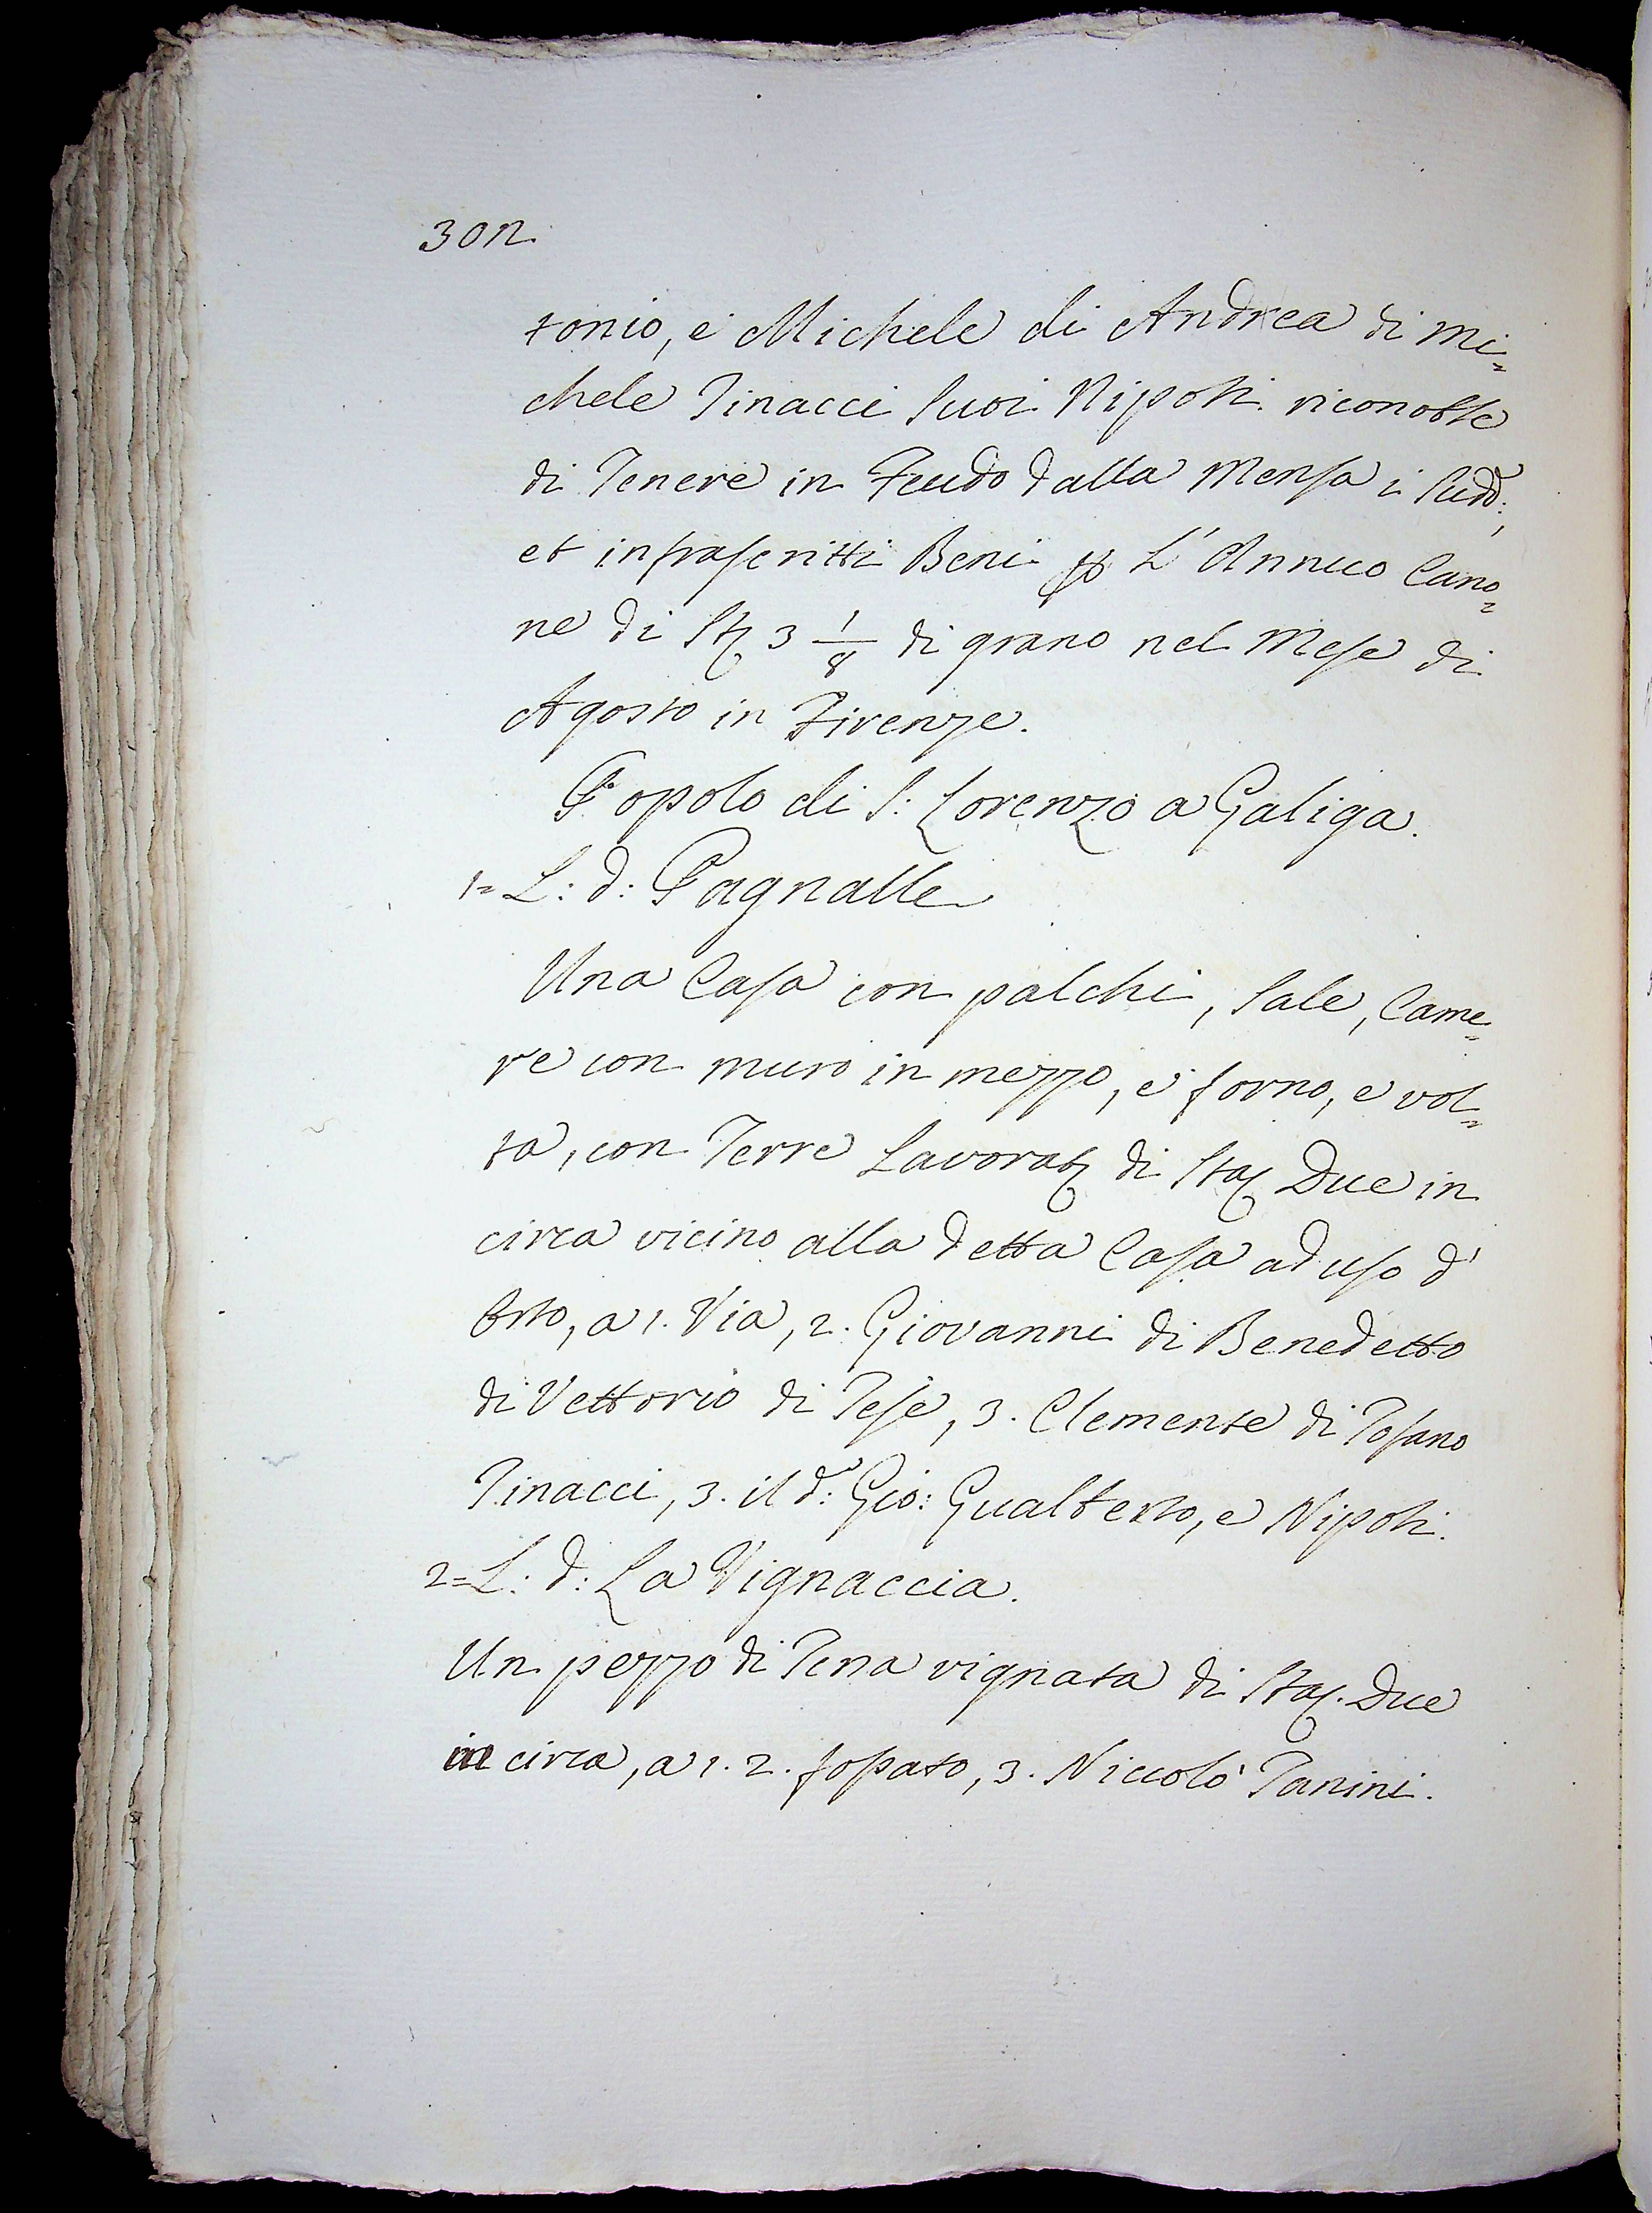 302
tonio, e Michele di Andrea di Mi=
chele Tinacci Suoi Nipoti riconobbe
di Tenere in Feudo dalla Mensa i Sudd:,
et infrascritti Beni p L'Annuo Cano=
ne di St 3 1/8 di grano nel Mese di
Agosto in Firenze.
Popolo di S: Lorenzo a Galiga.
1= L: d: Pagnalle
Una Casa con palchi, Sale, Came=
re con muro in mezzo, e forno, e vol=
ta, con Terre Lavorat di Sta Due in
circa vicino alla detta Casa ad uso d'
Orto, a 1. Via, 2. Giovanni di Benedetto
di Vettorio di Tese, 3. Clemente di Tofano
Tinacci, 3. il d: Gio: Gualberto, e Nipoti.
2= L: d: La Vignaccia.
Un pezzo di Terra vignata di Sta. Due
in circa, a 1. 2. fossato, 3. Niccolò Tanini.